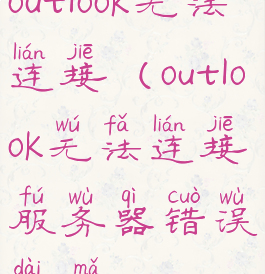 outlook无法
lián jiē
连接（outlo
wú fǎ lián jiē
ok无法连接
fú wù qì cuò wù
服务器错误
dài mǎ